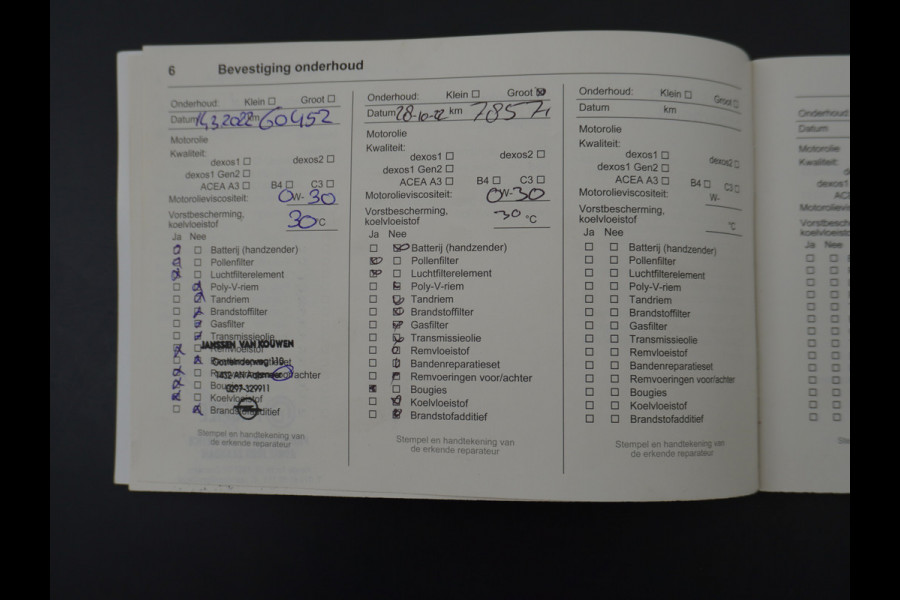 6 Bevestiging onderhoud
Onderhoud: Klein ☐ Groot ☐
Datum 14.3.2022 km 60452
Motorolie
Kwaliteit:
dexos1 ☐ dexos2 ☐
dexos1 Gen2 ☐
ACEA A3 ☐ B4 ☐ C3 ☐
Motorolieviscositeit: 0W-30
Vorstbescherming,
koelvloeistof 30°C
Ja Nee
Batterij (handzender)
Pollenfilter
Luchtfilterelement
Poly-V-riem
Tandriem
Brandstoffilter
Gasfilter
Transmissieolie
JANSSEN VAN KOUWEN
Remvloeistof
110
voor/achter
0297-329911
Koelvloeistof
Brandstofadditief
Stempel en handtekening van
de erkende reparateur
Onderhoud: Klein ☐ Groot
Datum 28-10-22 km 78571
Motorolie
Kwaliteit:
dexos1 ☐ dexos2 ☐
dexos1 Gen2 ☐
ACEA A3 ☐ B4 ☐ C3 ☐
Motorolieviscositeit: 0W-30
Vorstbescherming,
koelvloeistof -30 °C
Ja Nee
Batterij (handzender)
Pollenfilter
Luchtfilterelement
Poly-V-riem
Tandriem
Brandstoffilter
Gasfilter
Transmissieolie
Remvloeistof
Bandenreparatieset
Remvoeringen voor/achter
Bougies
Koelvloeistof
Brandstofadditief
Stempel en handtekening van
de erkende reparateur
Onderhoud: Klein ☐ Groot ☐
Datum km
Motorolie
Kwaliteit:
dexos1 ☐ dexos2 ☐
dexos1 Gen2 ☐
ACEA A3 ☐ B4 ☐ C3 ☐
Motorolieviscositeit: W-
Vorstbescherming,
koelvloeistof °C
Ja Nee
☐ ☐ Batterij (handzender)
☐ ☐ Pollenfilter
☐ ☐ Luchtfilterelement
☐ ☐ Poly-V-riem
☐ ☐ Tandriem
☐ ☐ Brandstoffilter
☐ ☐ Gasfilter
☐ ☐ Transmissieolie
☐ ☐ Remvloeistof
☐ ☐ Bandenreparatieset
☐ ☐ Remvoeringen voor/achter
☐ ☐ Bougies
☐ ☐ Koelvloeistof
☐ ☐ Brandstofadditief
Stempel en handtekening van
de erkende reparateur
Onderhoud:
Datum
Motorolie
Kwaliteit:
Ja Nee